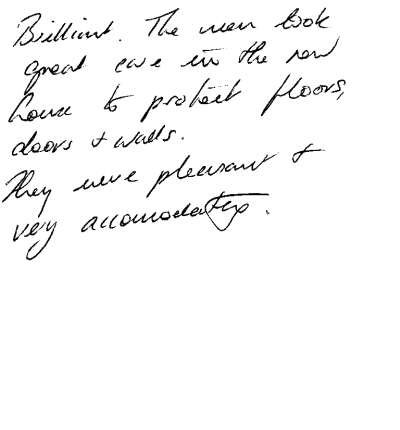 Brilliant. The men took
great care in the new
house to protect floors,
doors + walls.
They were pleasant +
very accomodating.